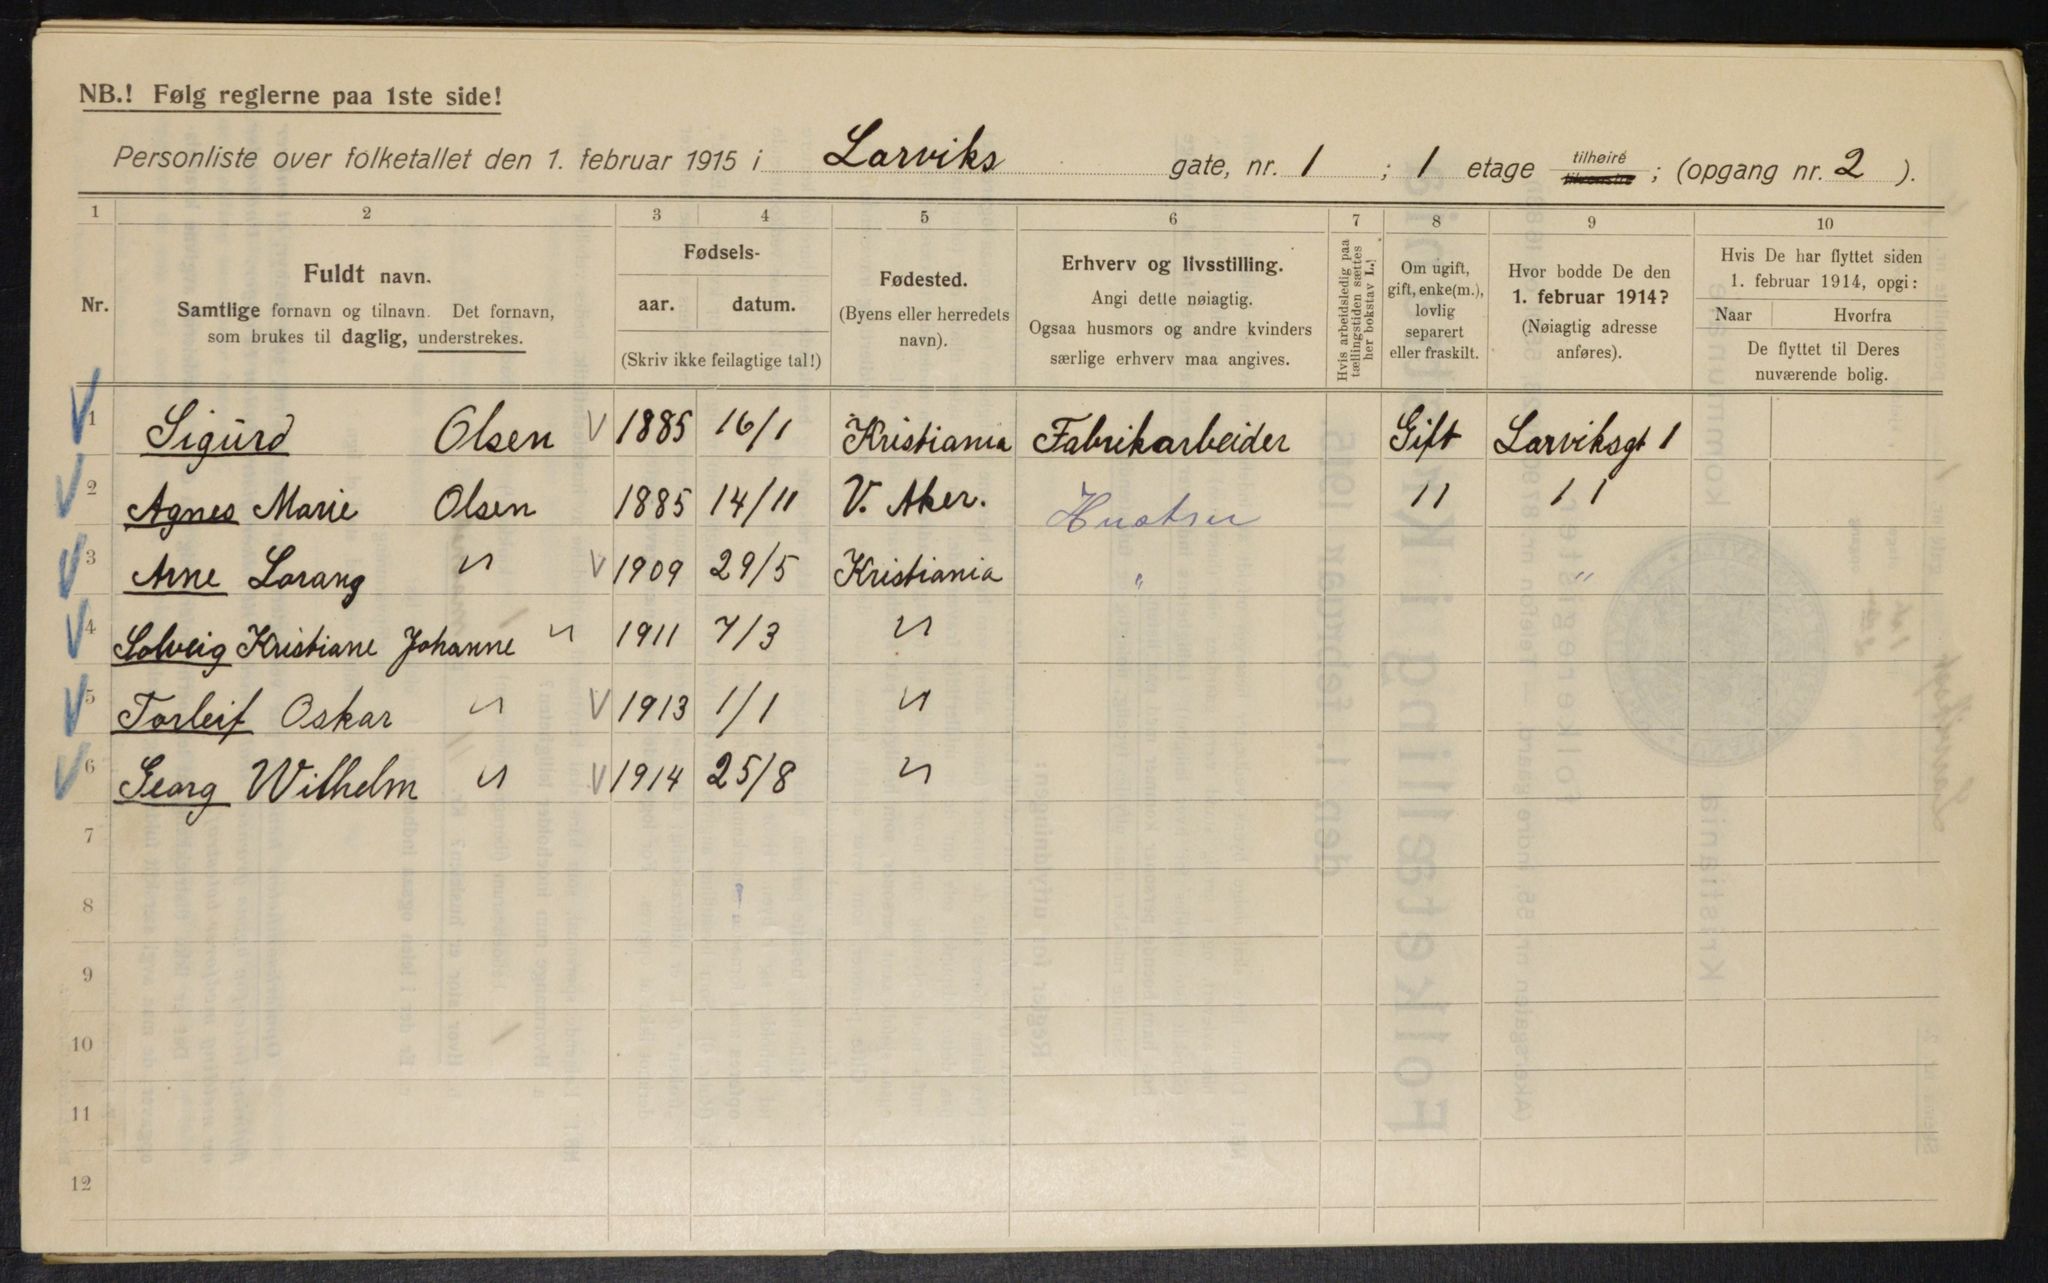 NB.! Følg reglerne paa 1ste side!
Personliste over folketallet den 1. februar 1915 i Larviks gate, nr. 1 ; 1 etage tilhøire tilvenstre ; (opgang nr. 2 ).
1 2 3 4 5 6 7 8 9 10
Nr.
Fuldt navn.
Samtlige fornavn og tilnavn. Det fornavn,
som brukes til daglig, understrekes.
Fødsels-
aar. datum.
(Skriv ikke feilagtige tal!)
Fødested.
(Byens eller herredets
navn).
Erhverv og livsstilling.
Angi dette nøiagtig.
Ogsaa husmors og andre kvinders
særlige erhverv maa angives.
Hvis arbeidsledig paa
tællingstiden sættes
her bokstav L.
Om ugift,
gift, enke(m.),
lovlig
separert
eller fraskilt.
Hvor bodde De den
1. februar 1914?
(Nøiagtig adresse
anføres).
Hvis De har flyttet siden
1. februar 1914, opgi:
Naar Hvorfra
De flyttet til Deres
nuværende bolig.
1 Sigurd Olsen V 1885 16/1 Kristiania Fabrikarbeider Gift Larviksgt 1
2 Agnes Marie Olsen 1885 14/11 V. Aker. Hustru " "
3 Arne Lorang " V 1909 29/5 Kristiania " "
4 Solveig Kristiane Johanne " 1911 7/3 "
5 Torleif Oskar " V 1913 1/1 "
6 Georg Wilhelm " V 1914 25/8 "
7
8
9
10
11
12